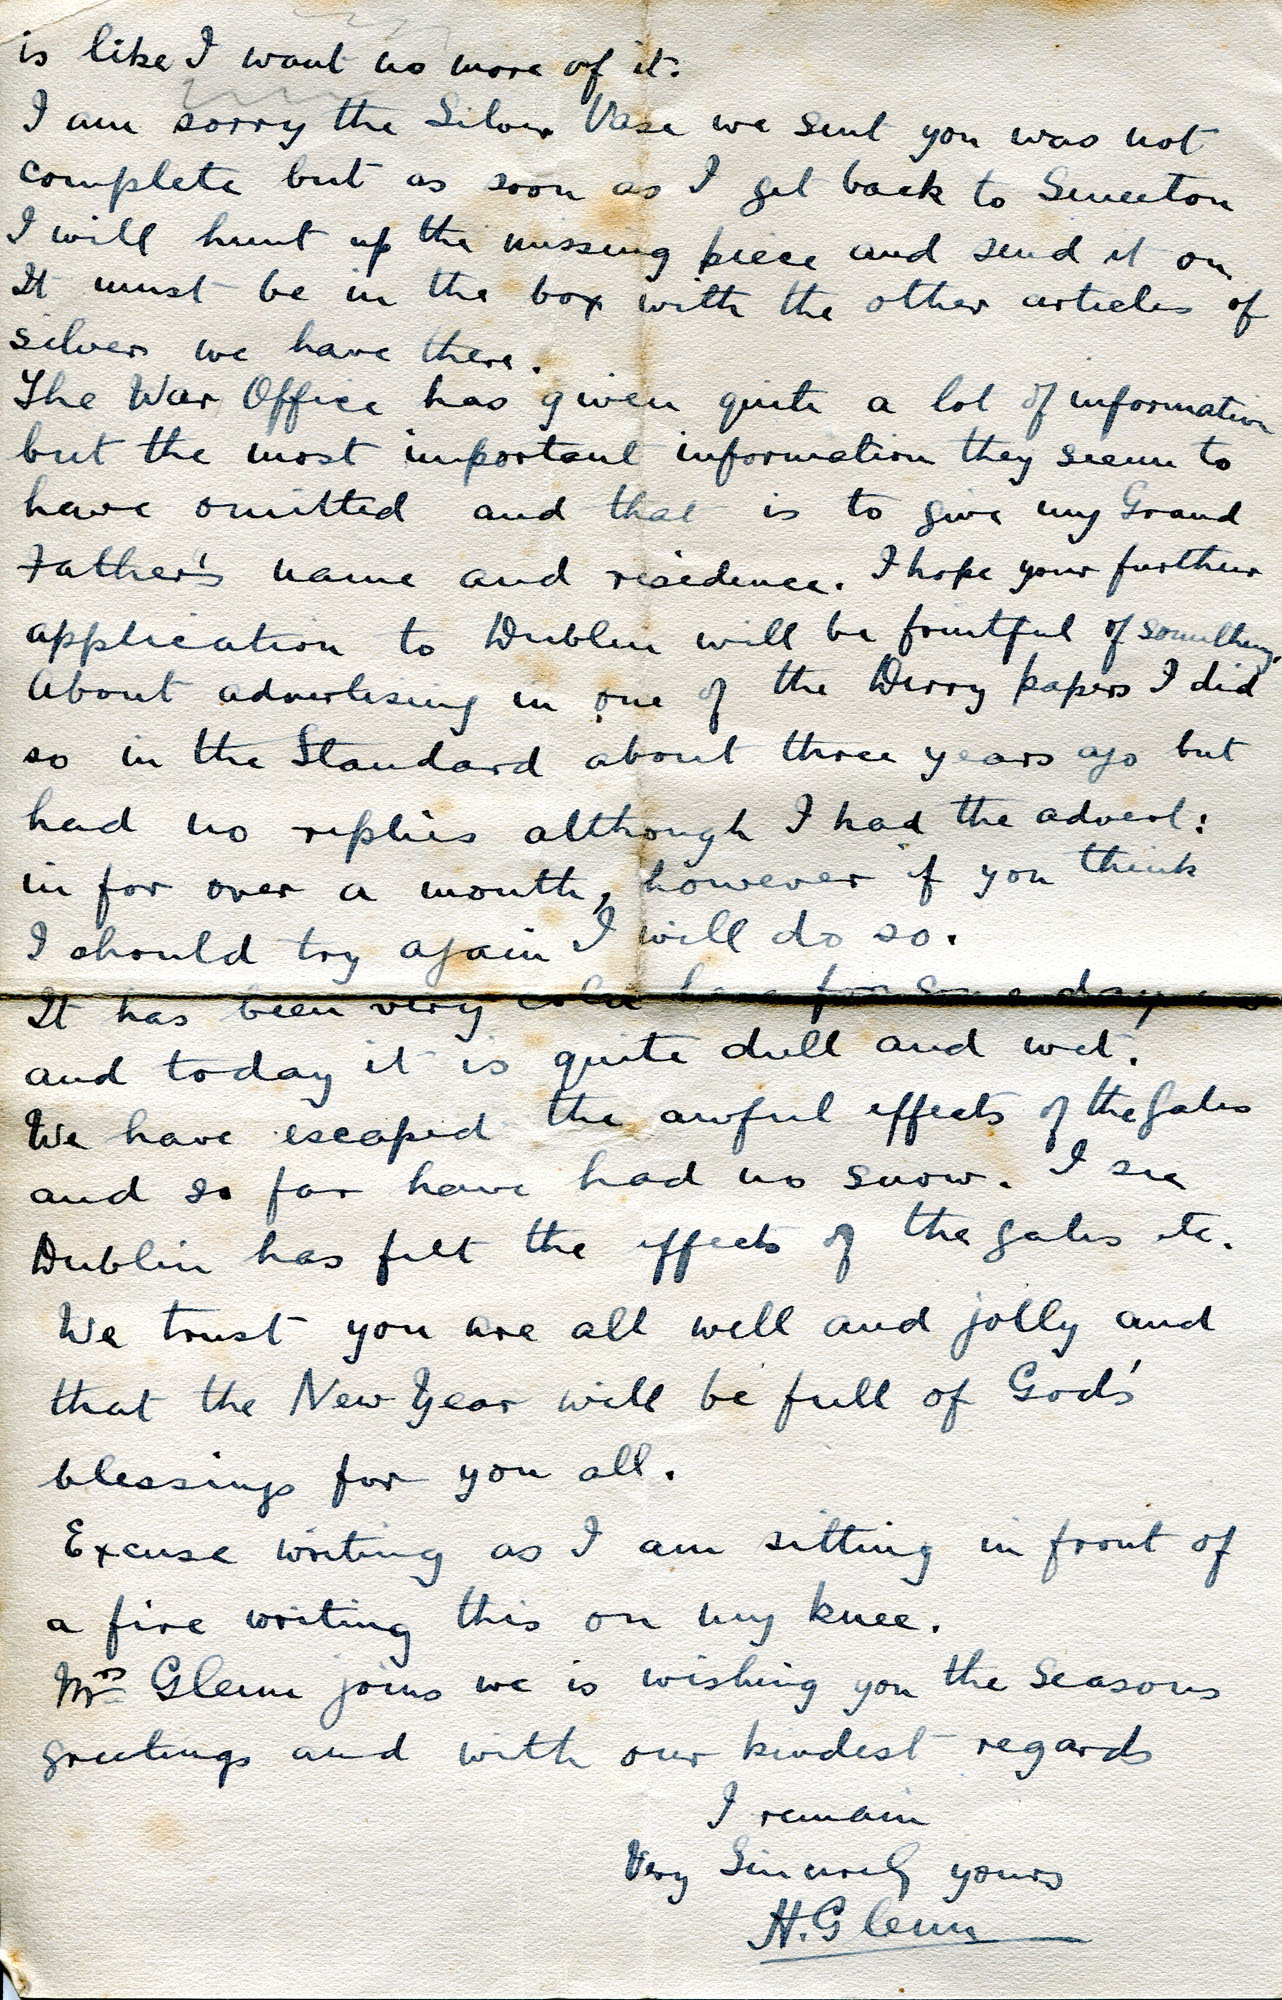 is like I want no more of it.
I am sorry the Silver Vase we sent you was not
complete but as soon as I get back to Smeeton
I will hunt up the missing piece and send it on.
It must be in the box with the other articles of
silver we have there.
The War Office has given quite a lot of information
but the most important information they seem to
have omitted and that is to give my Grand
Father's name and residence. I hope your further
application to Dublin will be fruitful of something.
About advertising in one of the Derry papers I did
so in the Standard about three years ago but
had no replies although I had the advert:
in for over a month, however if you think
I should try again I will do so.
It has been very cold here for some days
and today it is quite dull and wet.
We have escaped the awful effects of the gales
and so far have had no snow. I see
Dublin has felt the effects of the gales etc.
We trust you are all well and jolly and
that the New Year will be full of God's
blessings for you all.
Excuse writing as I am sitting in front of
a fire writing this on my knee.
Mrs Glenn joins me is wishing you the Seasons
greetings and with our kindest regards
I remain
Very Sincerely yours
H. Glenn